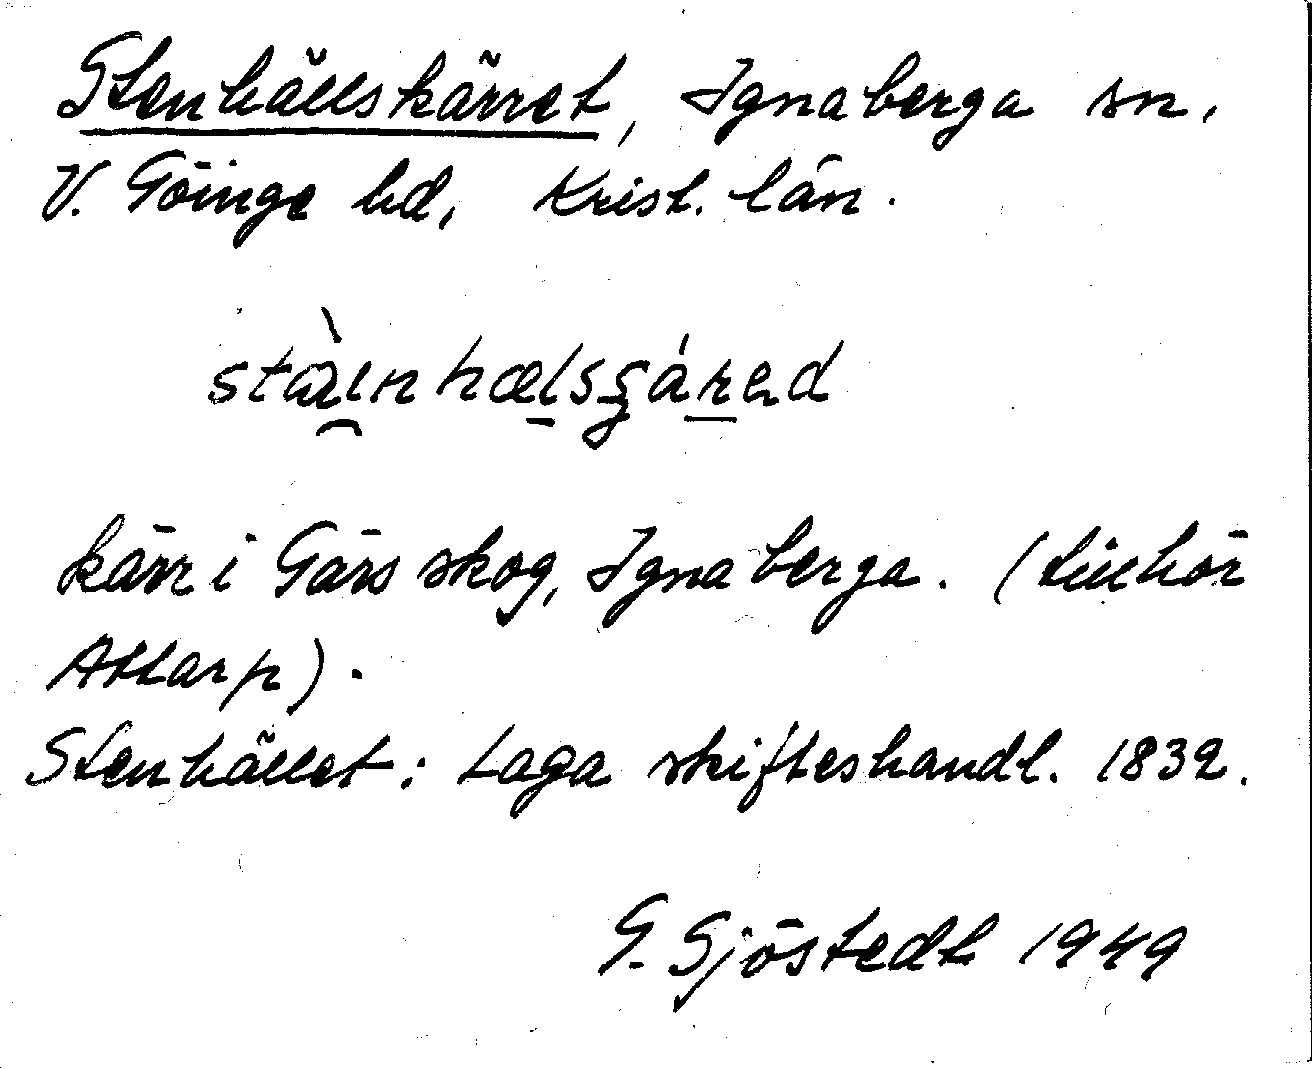 Stenhällskärret, Ignaberga sn,
V. Göinge hd, Krist. län.
kärr i Gärs skog, Ignaberga. (tillhör
Attarp).
Stenhället: Laga skifteshandl. 1832.
G. Sjöstedt 1949